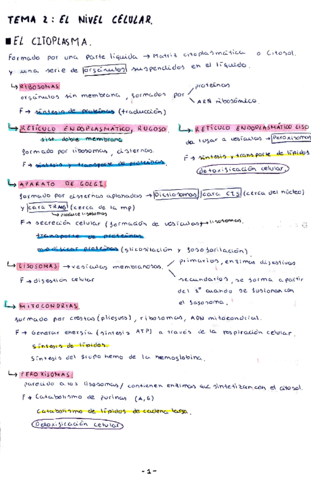 TEMA 2: EL NIVEL CELULAR.
■ EL CITOPLASMA.
Formado por una parte líquida → Matriz citoplasmática o Citosol.
y una serie de orgánulos suspendidos en el líquido.
↳ RIBOSOMAS
orgánulos sin membrana, formados por proteínas
ARN ribosómico.
F → síntesis de proteínas (traducción)
↳ RETÍCULO ENDOPLASMÁTICO RUGOSO.
sist. doble membrana
formado por ribosomas, cisternas.
F → síntesis y transporte de proteínas.
↳ RETÍCULO ENDOPLASMÁTICO LISO
da lugar a vesículas → Peroxisomas
F → síntesis, transporte de lípidos
detoxificación celular
↳ APARATO DE GOLGI.
formado por cisternas aplanadas → Dictiosomas cara CIS (cerca del núcleo)
y cara TRANS (cerca de la mp)
↳ produce lisosomas
F → secreción celular (formados de vesículas → lisosomas.
transporte de proteínas
modificar proteínas (glicosilación y fosforilación)
↳ LISOSOMAS → vesículas membranosas.
primarios, enzimas digestivos
secundarios, se forma a partir
del 1º cuando se fusionan con
el fagosoma.
F → digestión celular
↳ MITOCONDRIAS
formado por crestas (pliegues), ribosomas, ADN mitocondrial.
F → Generar energía (síntesis ATP) a través de la respiración celular.
síntesis de lípidos.
síntesis del grupo hemo de la hemoglobina.
↳ PEROXISOMAS
parecido a los lisosomas / contienen enzimas que sintetizan con el citosol.
F → Catabolismo de purinas (A, G)
Catabolismo de lípidos de cadena larga.
Detoxificación celular
-1-